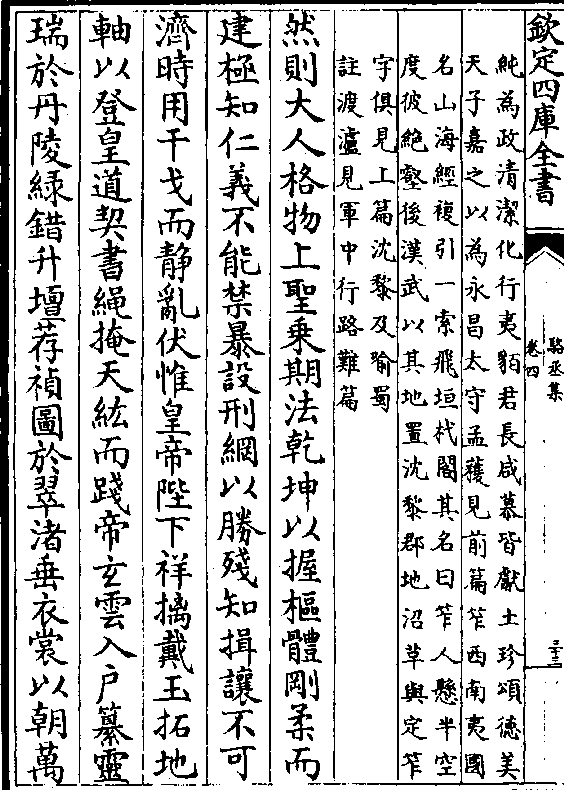 欽定四庫全書
駱丞集
卷四
純為政清潔化行夷貊君長咸慕皆獻土珍頌德美
天子嘉之以為永昌太守孟獲見前篇笮西南夷國
名山海經複引一索飛垣栈閣其名曰笮人懸半空
度彼絶壑後漢武以其地置沈黎郡地沼草與定笮
字俱見上篇沈黎及喻蜀
註渡瀘見軍中行路難篇
然則大人格物上聖乗期法乾坤以握樞體剛柔而
建極知仁義不能禁暴設刑網以勝殘知揖讓不可
濟時用干戈而静亂伏惟皇帝陛下祥摛戴玉拓地
軸以登皇道契書繩掩天紘而踐帝玄雲入戶纂靈
瑞於丹陵緑錯升壇荐禎圖於翠渚垂衣裳以朝萬